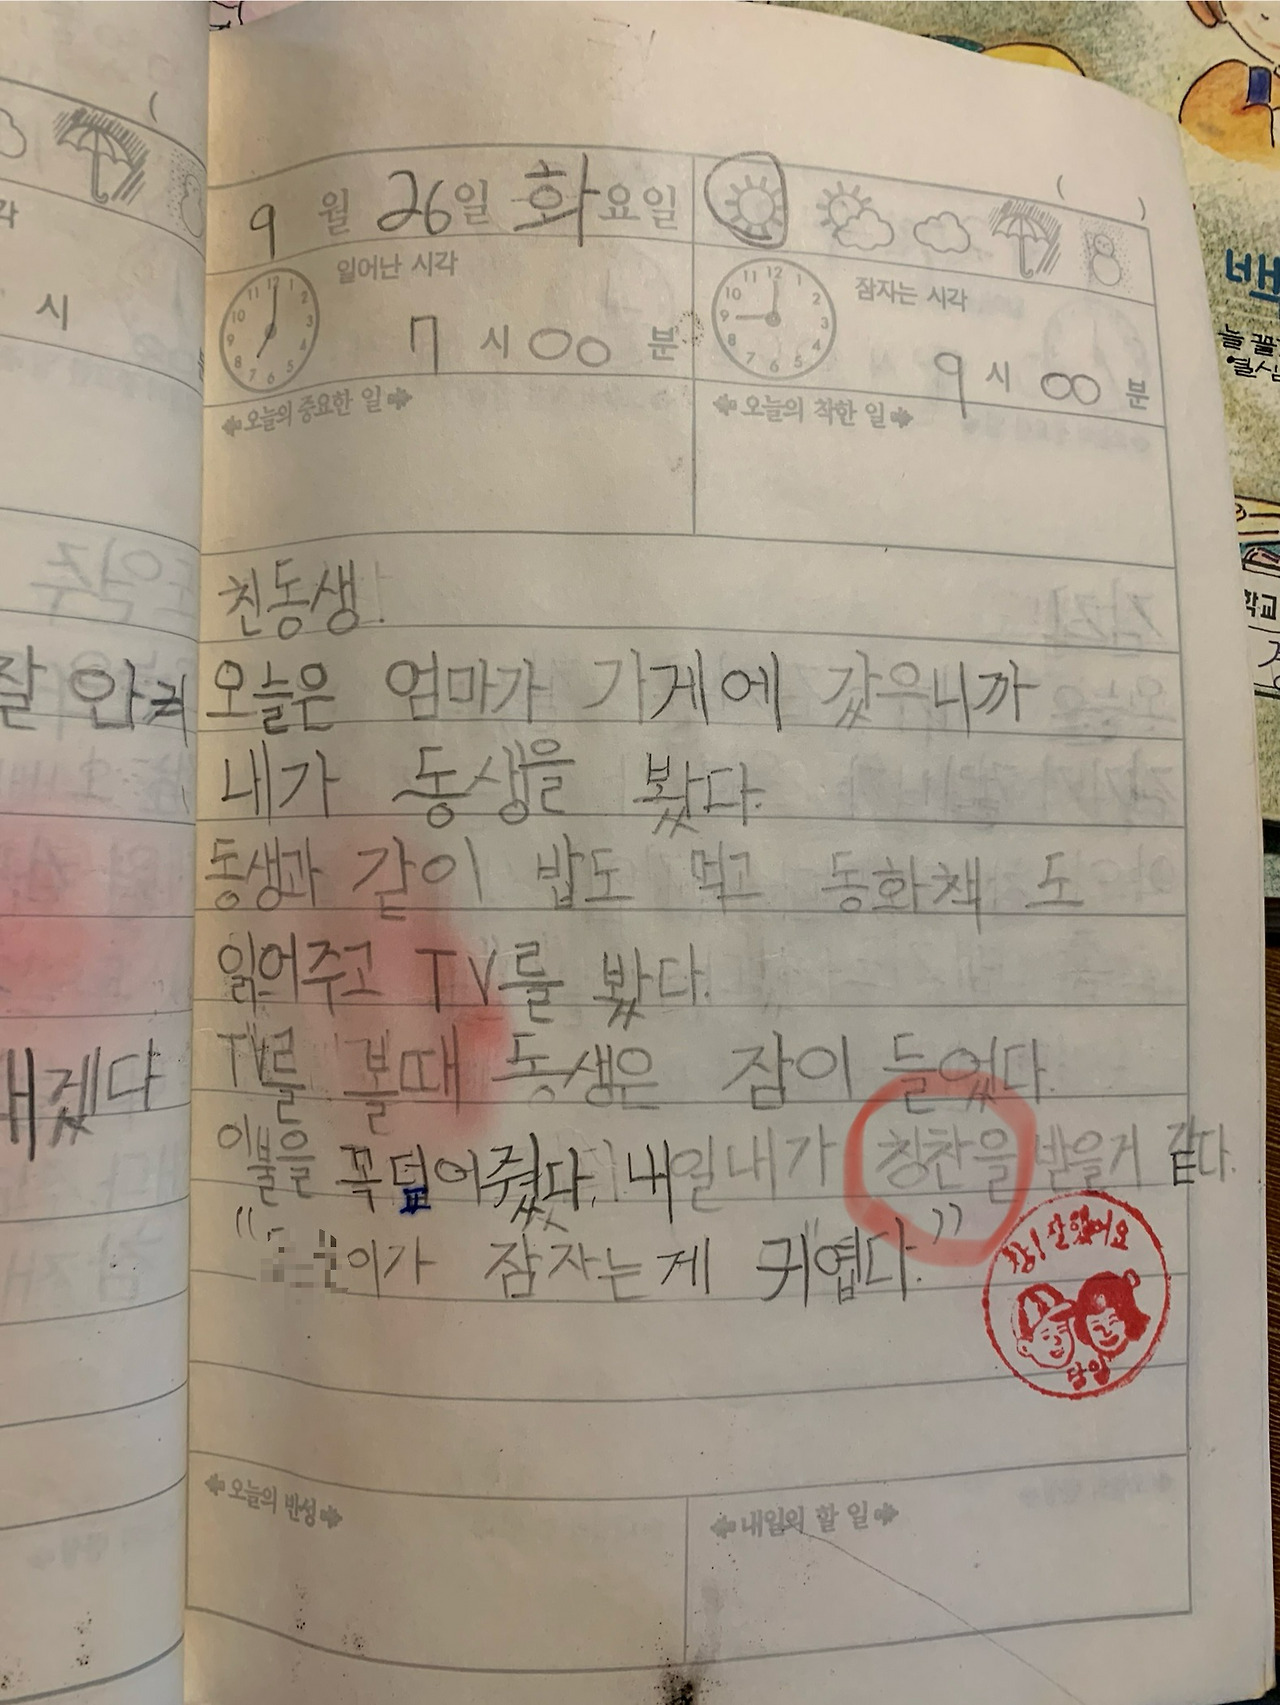 9월 26일 화요일
일어난 시각
7시 00분
잠자는 시각
9시 00분
오늘의 중요한 일
오늘의 착한 일
친동생.
오늘은 엄마가 가게에 갔우니까
내가 동생을 봤다.
동생과 같이 밥도 먹고 동화책 도
읽어주고 TV를 봤다.
TV를 볼때 동생은 잠이 들었다.
이불을 꼭덮어줬다. 내일내가 칭찬을 받을거 같다.
"이가 잠자는게 귀엽다."
참! 잘했어요
담임
오늘의 반성
내일의 할 일
잘 안
내겠다
각
시
늘
학교